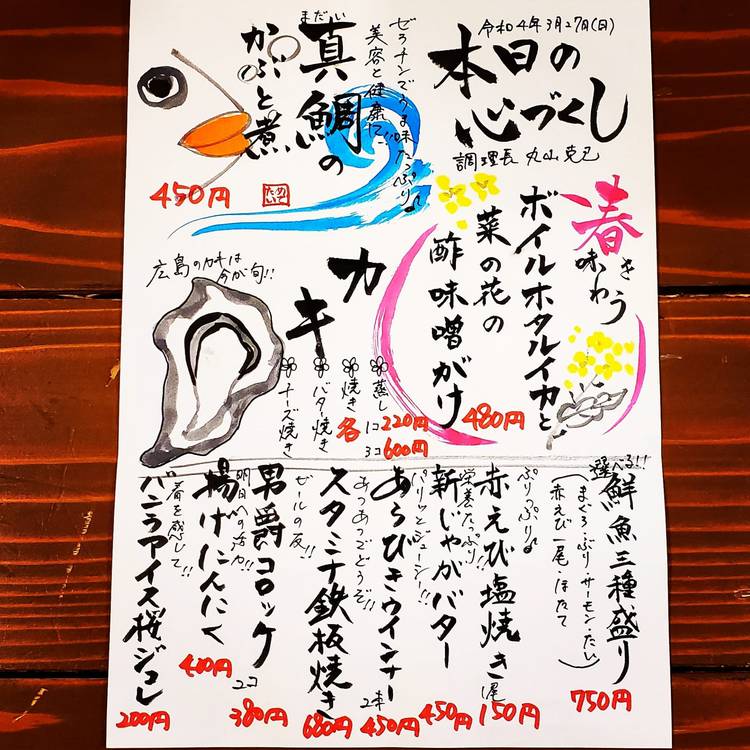 令和4年3月27日(日)
本日の
心づくし
調理長 丸山克己
ゼラチンでうま味たっぷり♪
美容と健康に!!
まだい
真鯛の
かぶと煮
450円
春
きらう
味わう
ボイルホタルイカと
菜の花の
酢味噌がけ
480円
広島のカキは
今が旬!!
カキ
蒸し
焼き
バター焼き
チーズ焼き
各
1コ 220円
3コ 600円
選べる!!
鮮魚三種盛り
(まぐろ・ぶり・サーモン・たい
赤えび一尾・ほたて)
750円
ぷりっぷり♪
赤えび塩焼き
1尾
150円
栄養たっぷり!!
新じゃがバター
450円
パリッとジューシー!!
あらびきウインナー
2本
450円
あつあつでどうぞ!!
スタミナ鉄板焼き
680円
ビールの友!!
男爵コロッケ
2コ
380円
明日への活力!!
揚げにんにく
400円
春を感じて!!
バニラアイス桜ジュレ
200円